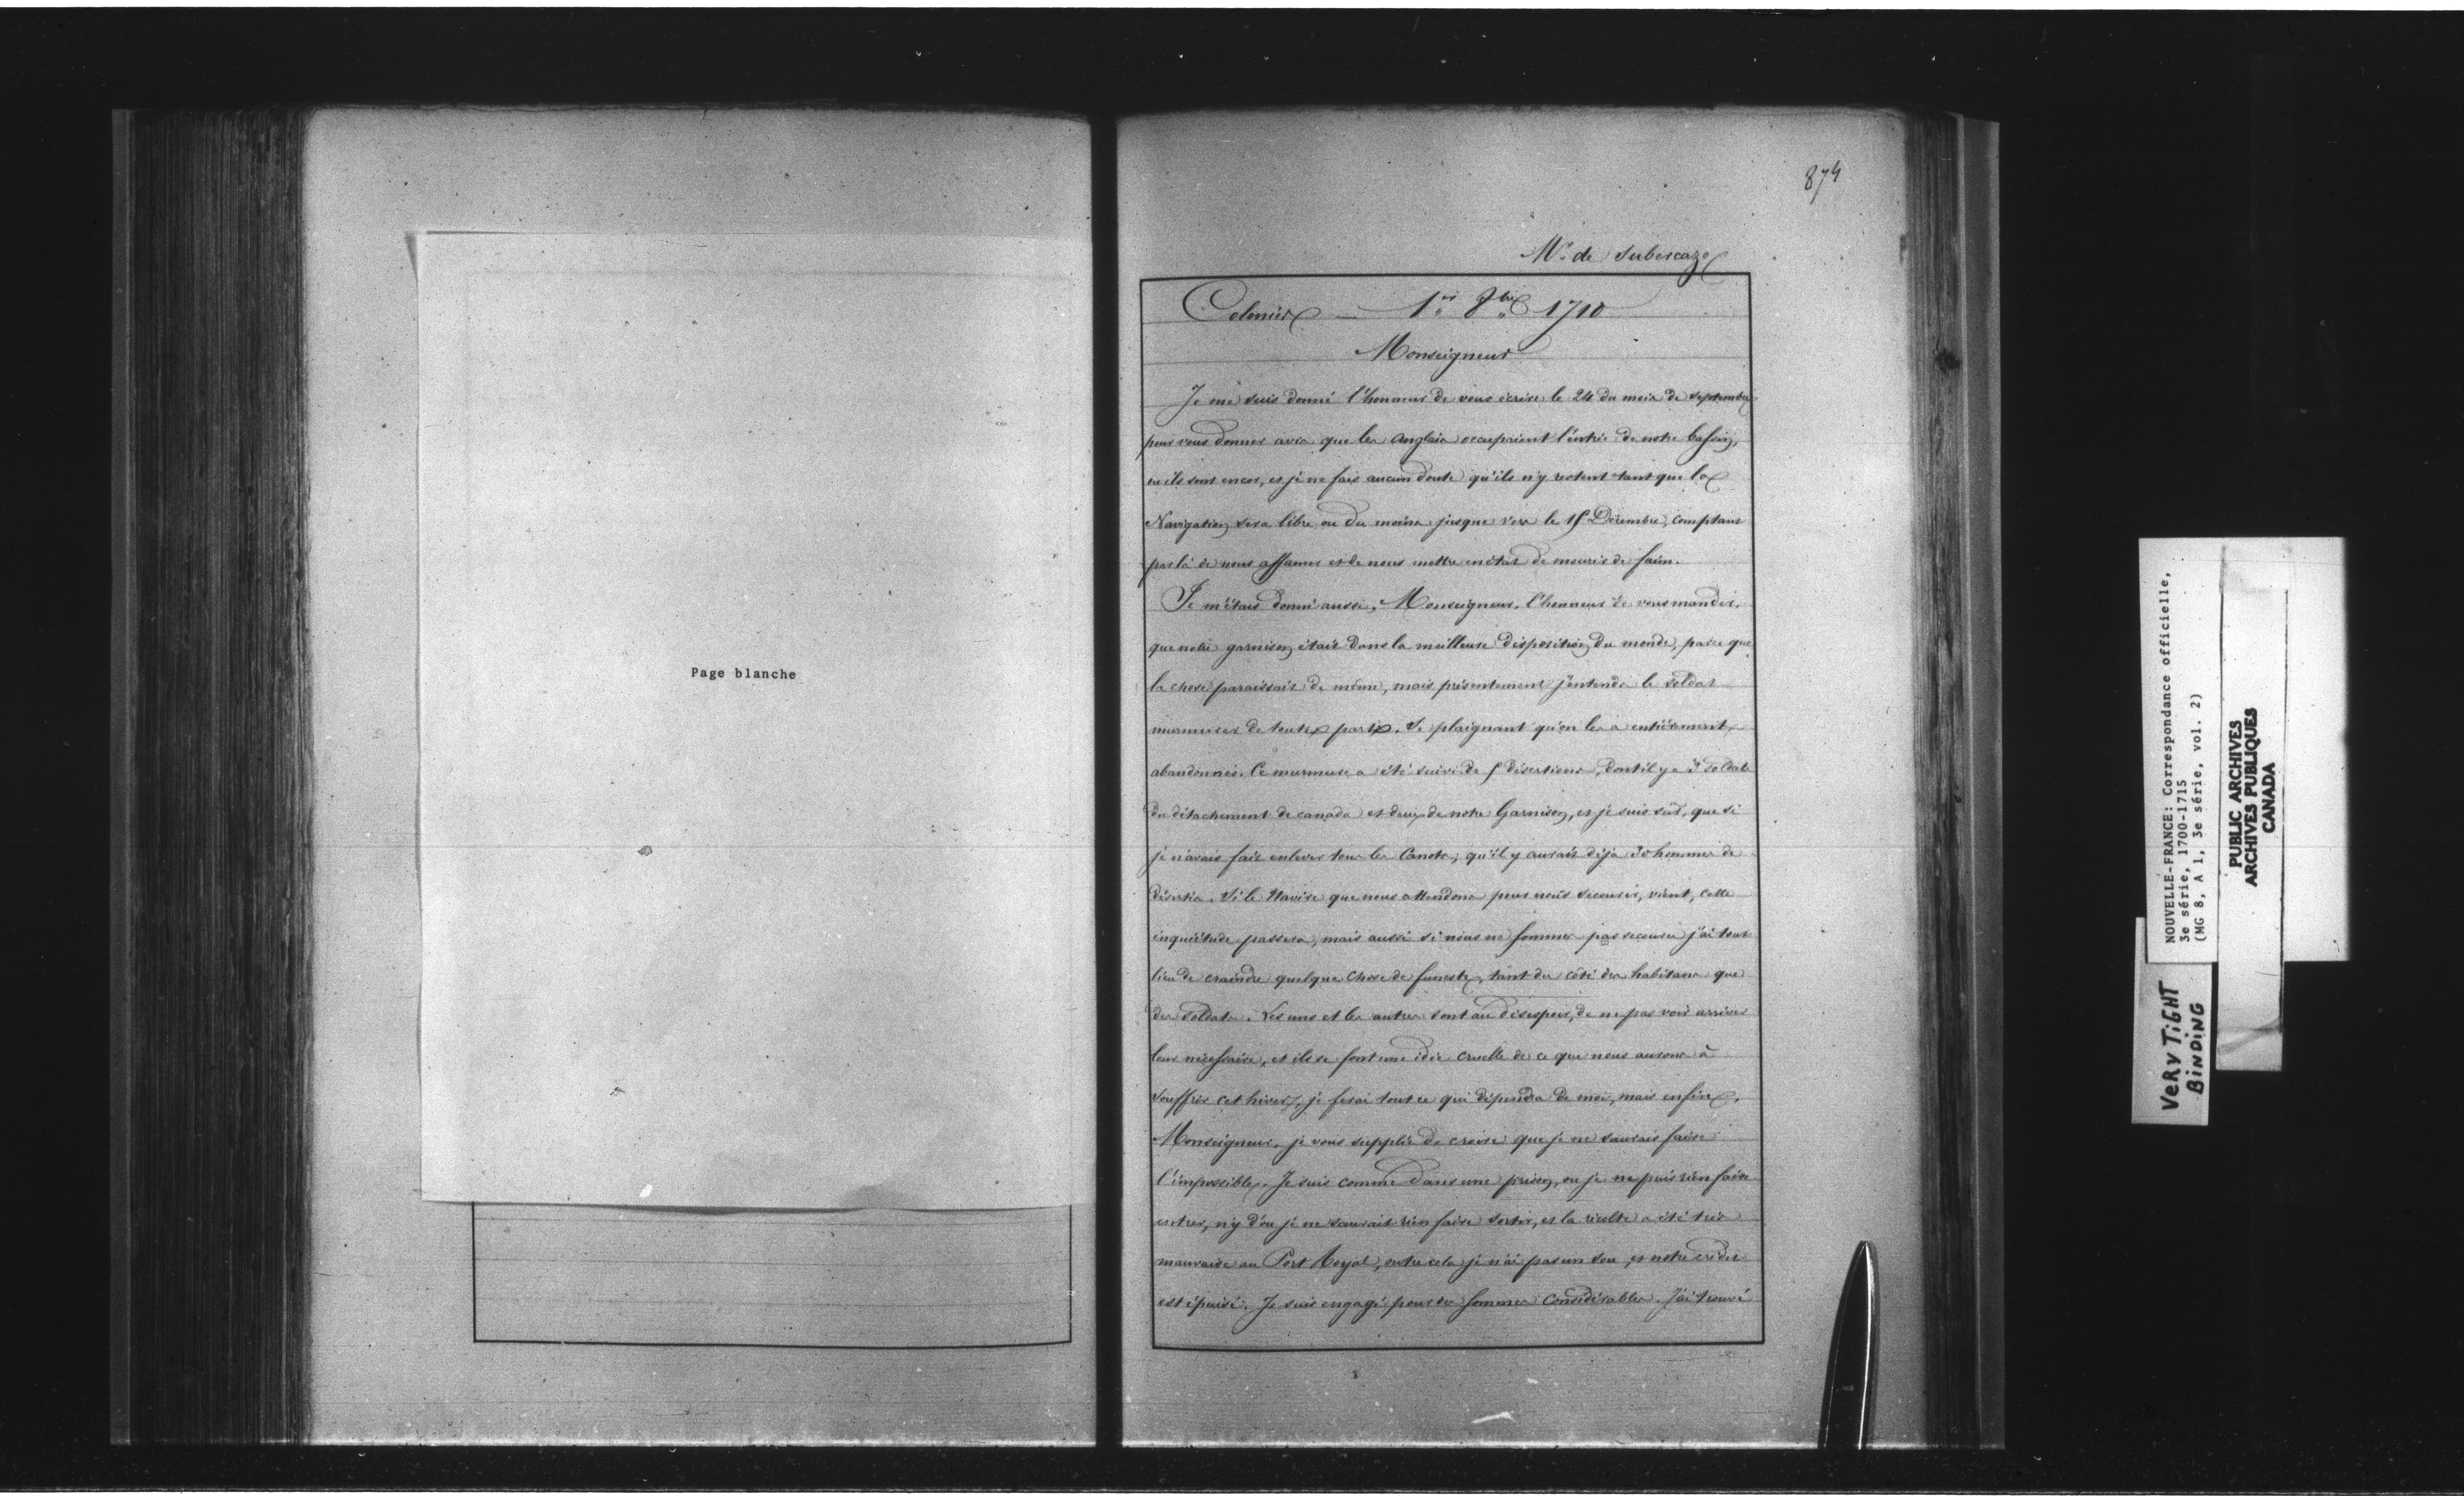 Page blanche
874
Mr. de Subercaze
Colonies — 1er 8bre 1710
Monseigneur
Je me suis donné l'honneur de vous écrire le 24 du mois de septembre
pour vous donner avis que les Anglais occupaient l'entrée de notre bassin,
ou ils sont encor, et je ne fais aucun doute qu'ils n'y restent tant que la
Navigation sera libre ou du moins jusque vers le 15 Décembre, comptant
par là de nous affamer et de nous mettre en état de mourir de faim.
Je m'étais donné aussi, Monseigneur, l'honneur de vous mander,
que notre garnison était dans la meilleure disposition du monde, parce que
la chose paraissait de même, mais présentement j'entends le soldat
murmurer de toutes parts. Se plaignant qu'on les a entièrement
abandonnés. Ce murmure a été suivi de 5 désertions, dont il y a 3 soldats
du détachement de canada et deux de notre Garnison, et je suis sûr, que si
je n'avais fait enlever tous les Canots, qu'il y aurait déja 30 hommes de
désertés. Si le Navire que nous attendons pour nous secourir, vient, cette
inquiétude passera, mais aussi si nous ne sommes pas secourus j'ai tout
lieu de craindre quelque chose de funeste, tant du côté des habitans que
des soldats. Les uns et les autres sont au désespoir, de ne pas voir arriver
leur nécessaire, et ils se font une idée cruelle de ce que nous aurons à
souffrir cet hiver, je ferai tout ce qui dépendra de moi, mais enfin,
Monseigneur, je vous supplie de croire que je ne saurais faire
l'impossible. Je suis comme dans une prison, ou je ne puis rien faire
entrer, n'y d'ou je ne saurait rien faire sortir, et la récolte a été très
mauvaise au Port Royal, outre cela je n'ai pas un sou, et notre crédit
est épuisé. Je suis engagé pour des sommes considérables. J'ai trouvé
NOUVELLE-FRANCE: Correspondance officielle,
3e série, 1700-1715
(MG 8, A 1, 3e série, vol. 2)
PUBLIC ARCHIVES
ARCHIVES PUBLIQUES
CANADA
VERY TIGHT
BINDING